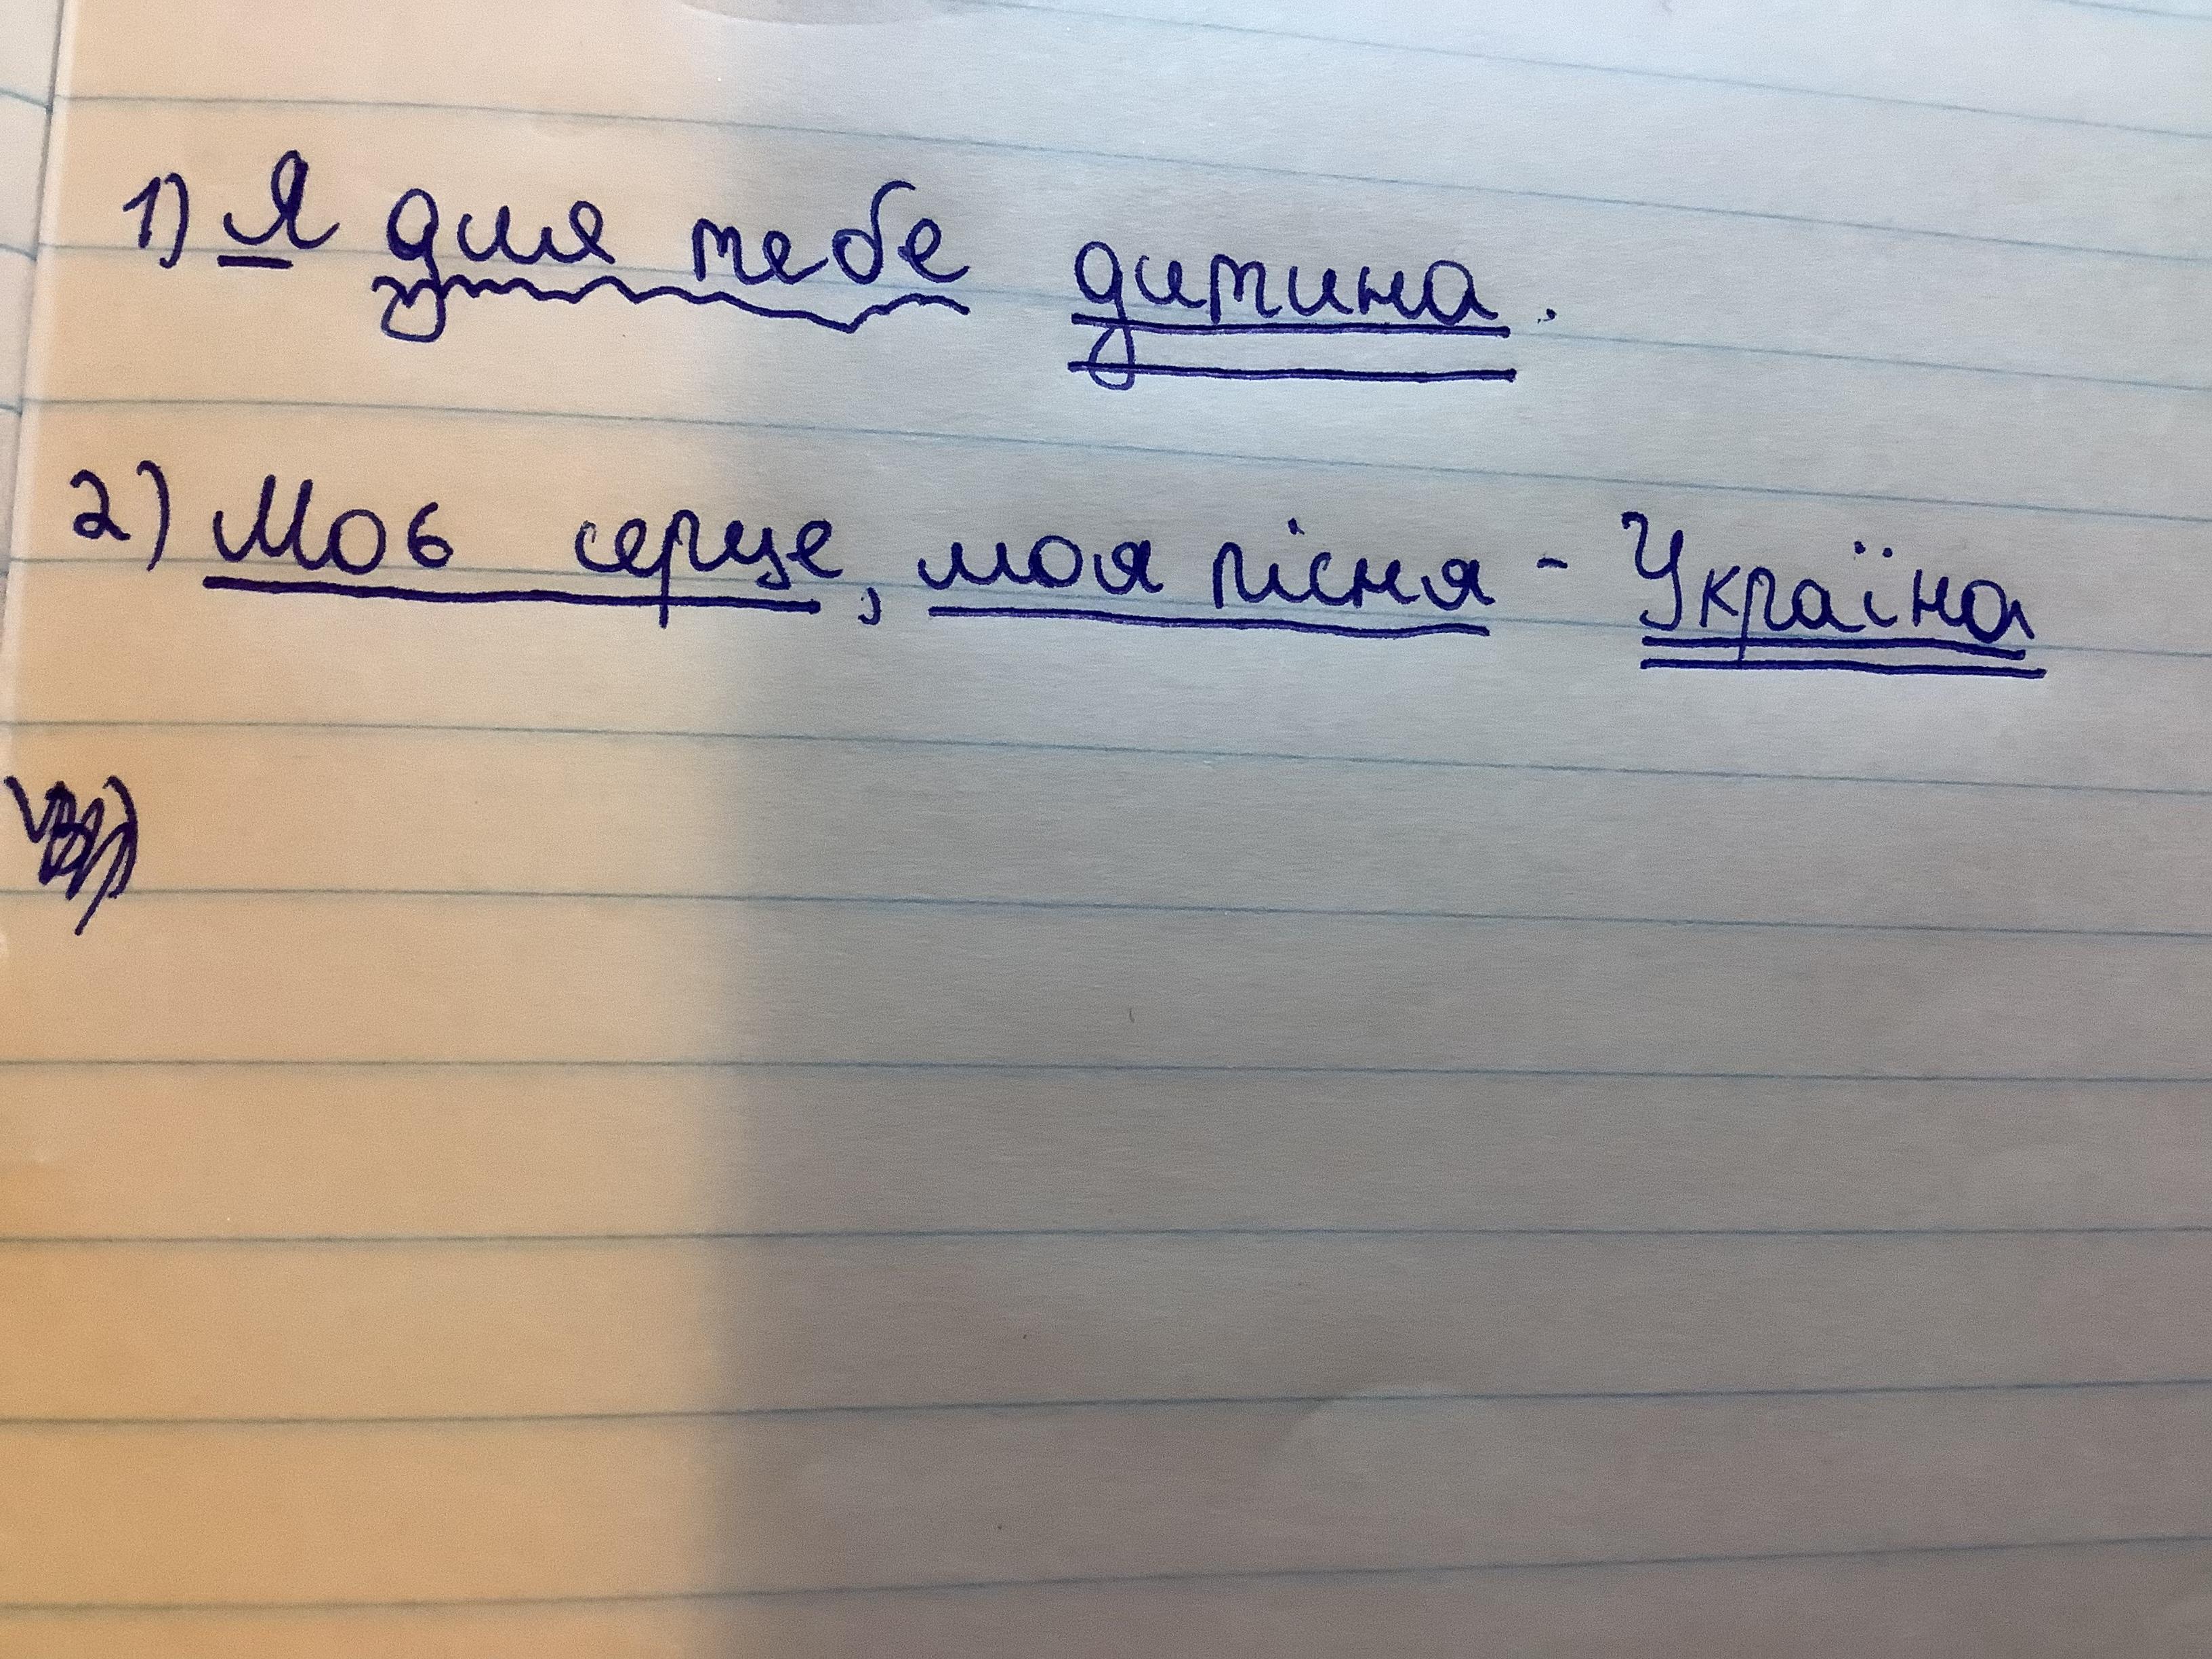 1) Я для тебе дитина.
2) Моє серце, моя пісня - Україна